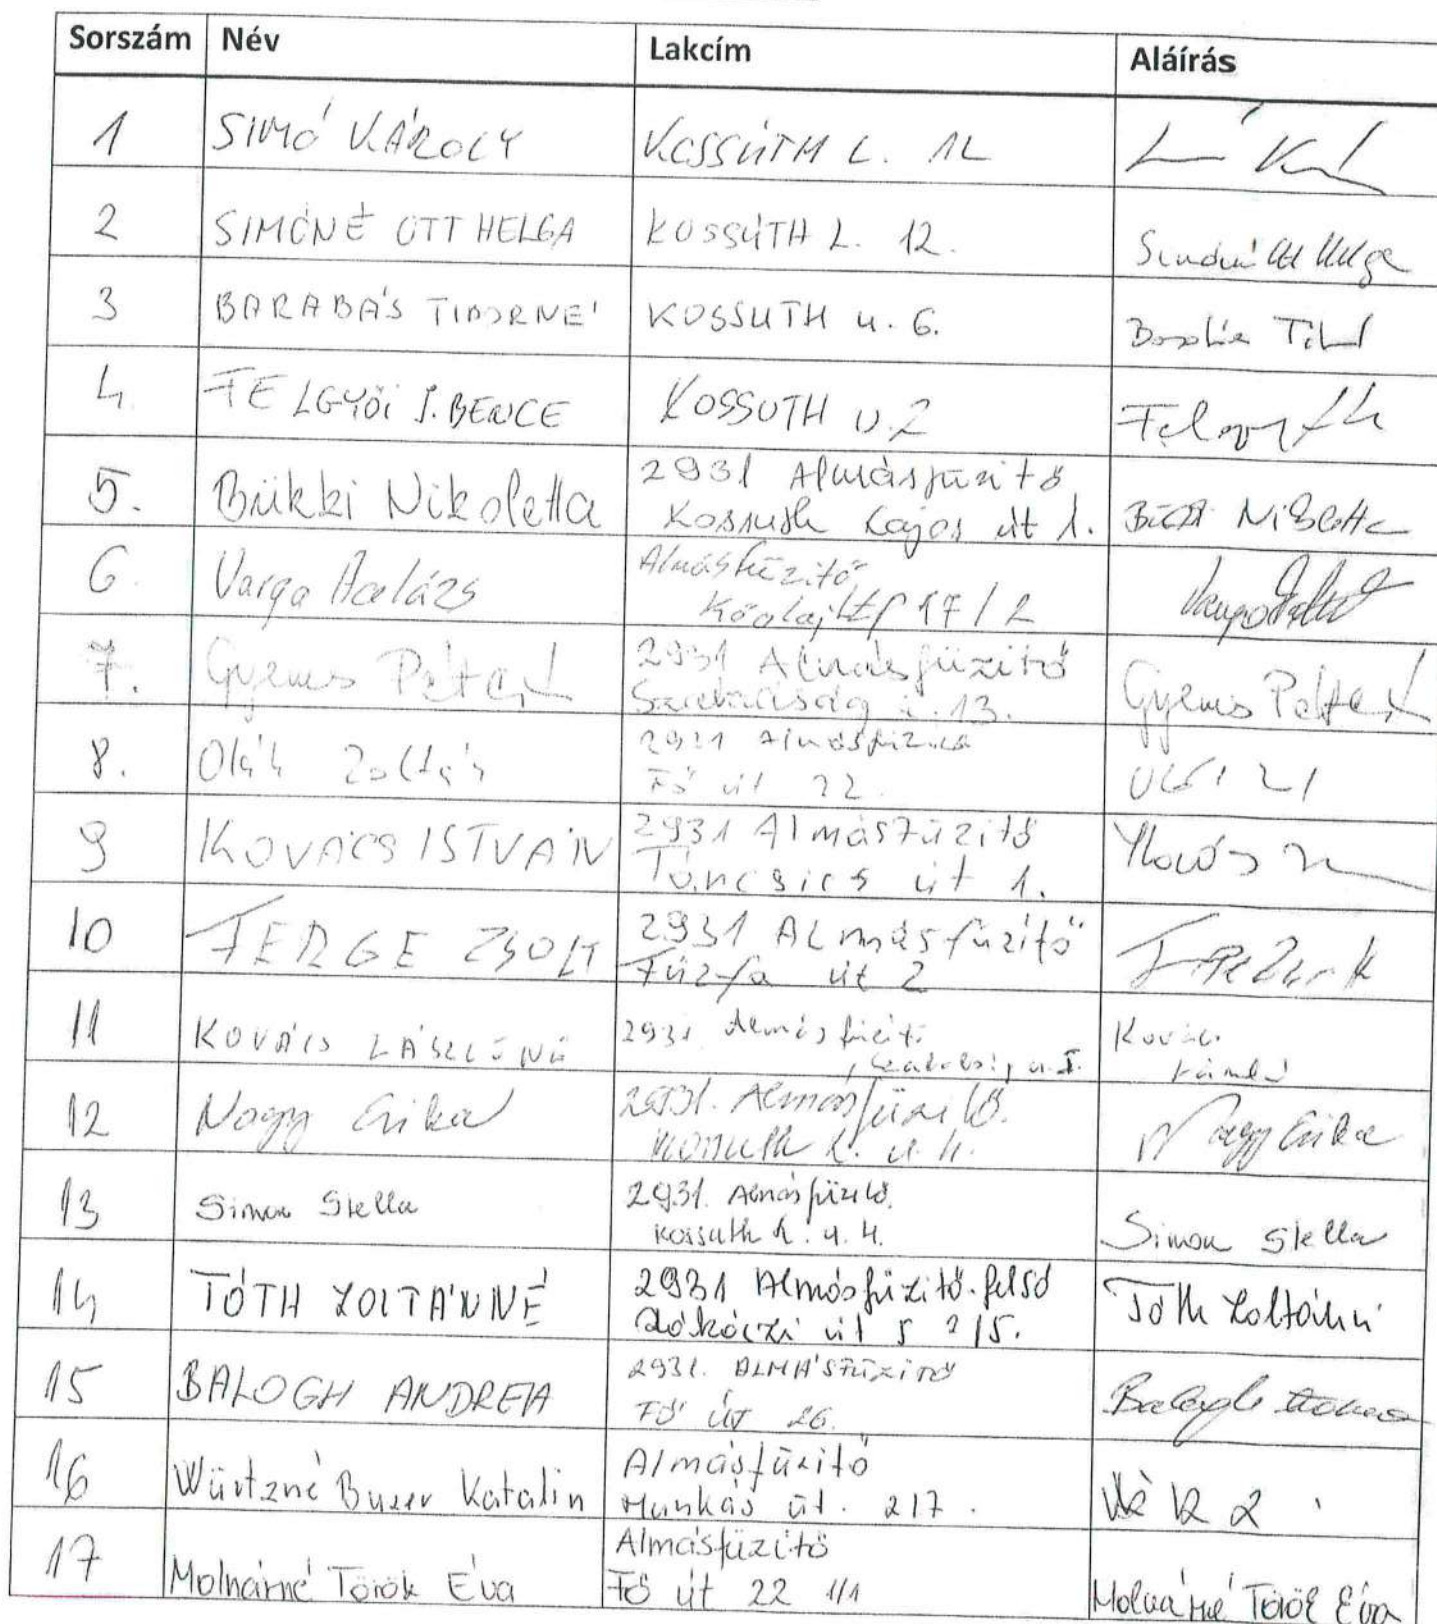 Sorszám Név Lakcím Aláírás
1 SIMÓ KÁROLY KOSSÚTH L. 12
2 SIMÓNÉ OTT HELGA KOSSÚTH L. 12.
3 BARABÁS TIBORNÉ KOSSUTH u. 6.
4. FELGYŐI I. BENCE KOSSUTH U. 2
5. Bükki Nikoletta 2931 Almásfüzitő
Kossuth Lajos út 1.
6. Varga Balázs Almásfüzitő
Kőolaj ltp 17/2
7. Gyenes Péter 2931 Almásfüzitő
Szabadság u. 13. Gyenes Péter
8. Oláh Zoltán 2931 Almásfüzitő
Fő út 22.
9 KOVÁCS ISTVÁN 2931 Almásfüzitő
Táncsics út 1.
10 FERGE ZSOLT 2931 Almásfüzitő
Fűzfa út 2
11 KOVÁCS LÁSZLÓNÉ 2931 Almásfüzitő Kovács
12 Nagy Erika 2931. Almásfüzitő.
Kossuth L. u. 4. Nagy Erika
13 Simon Stella 2931. Almásfüzitő.
Kossuth L. u. 4. Simon Stella
14 TÓTH ZOLTÁNNÉ 2931 Almásfüzitő-felső
Rákóczi út 5 2/5. Tóth Zoltánné
15 BALOGH ANDREA 2931. ALMÁSFÜZITŐ
FŐ ÚT 26. Balogh
16 Würtzné Buzer Katalin Almásfüzitő
Munkás út. 2/7.
17 Molnárné Török Éva Almásfüzitő
Fő út 22 1/1 Molnárné Török Éva